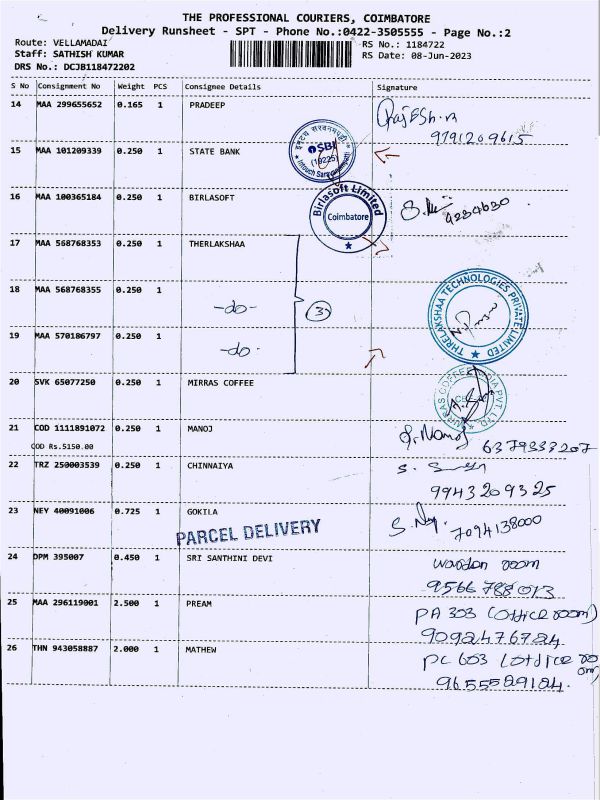 THE PROFESSIONAL COURIERS, COIMBATORE
Delivery Runsheet - SPT - Phone No.:0422-3505555 - Page No.:2
Route: VELLAMADAI RS No.: 1184722
Staff: SATHISH KUMAR RS Date: 08-Jun-2023
DRS No.: DCJB118472202
S No Consignment No Weight PCS Consignee Details Signature
14 MAA 299655652 0.165 1 PRADEEP Rajesh.n
9791209615
15 MAA 101209339 0.250 1 STATE BANK SBI
(19225)
16 MAA 100365184 0.250 1 BIRLASOFT Birlasoft Limited
Coimbatore
4234630
17 MAA 568768353 0.250 1 THERLAKSHAA
18 MAA 568768355 0.250 1 -do- 3 THRELAKSHAA TECHNOLOGIES PRIVATE LIMITED
19 MAA 570186797 0.250 1 -do-
20 SVK 65077250 0.250 1 MIRRAS COFFEE
21 COD 1111891072 0.250 1 MANOJ Manoj
COD Rs.5150.00 6379333207
22 TRZ 250003539 0.250 1 CHINNAIYA
9943209325
23 NEY 40091006 0.725 1 GOKILA
PARCEL DELIVERY 7094138000
24 DPM 395007 0.450 1 SRI SANTHINI DEVI warden room
9566788013
25 MAA 296119001 2.500 1 PREAM PA 303 (office room)
9092476724
26 THN 943058887 2.000 1 MATHEW PC 603 (office room)
9655589184.